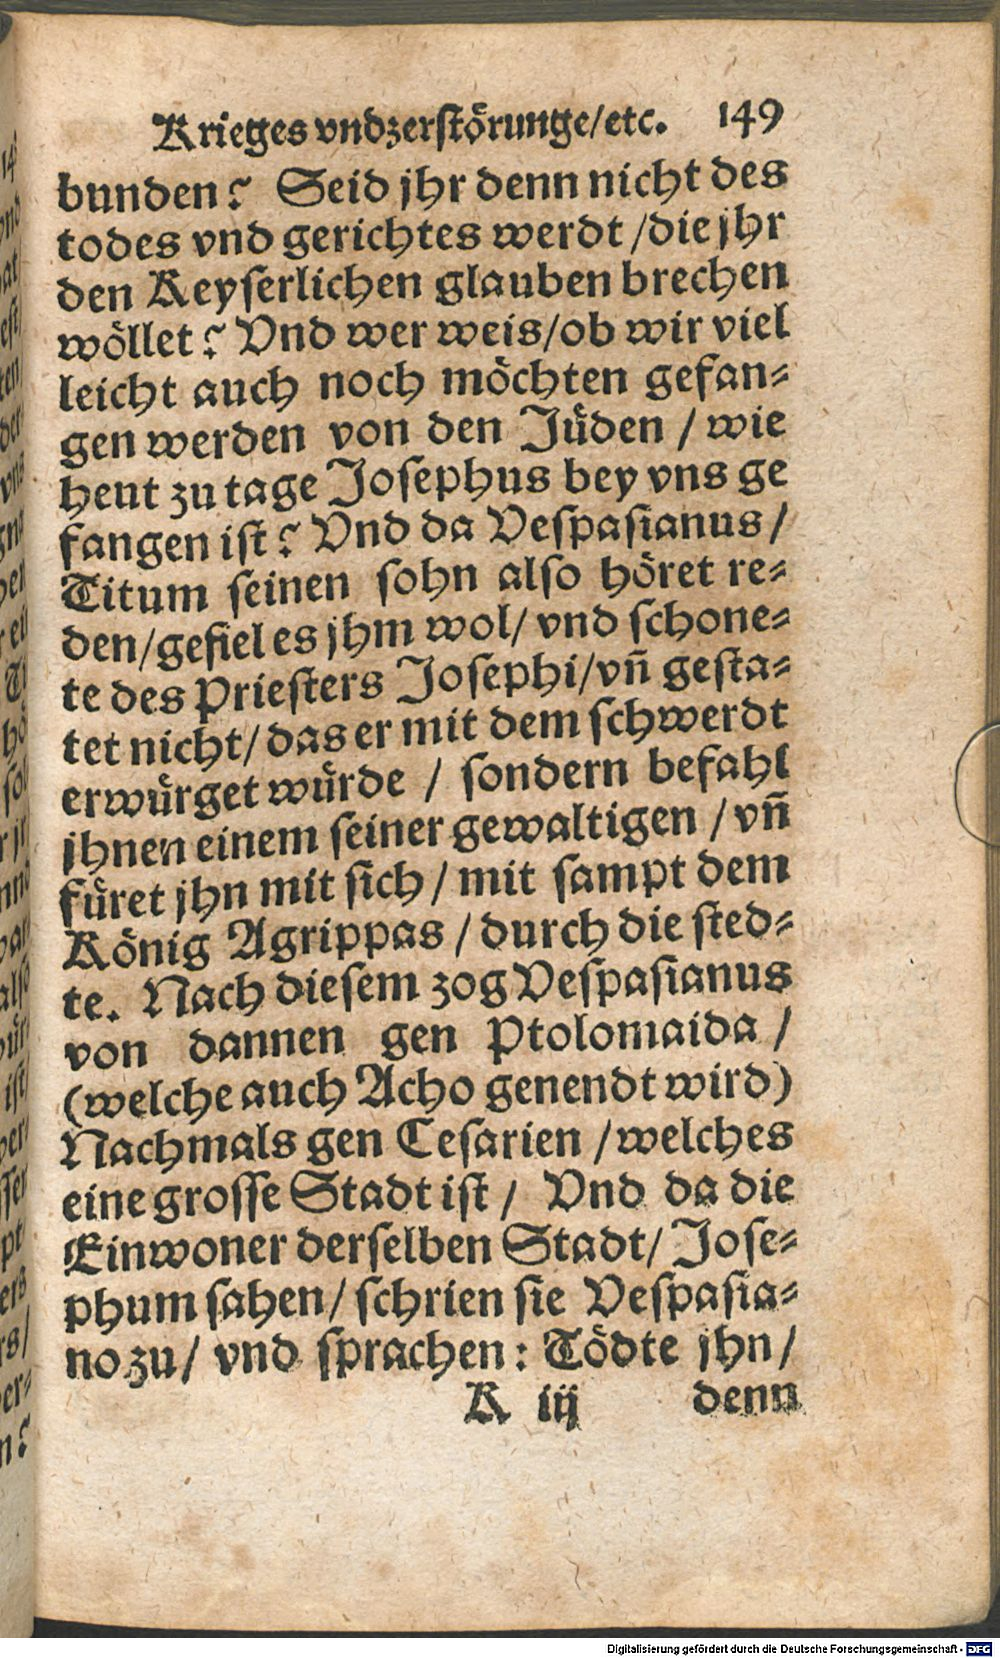 Krieges vnd zerstörunge/etc. 149
bunden? Seid jhr denn nicht des
todes vnd gerichtes werdt /die jhr
den Keyserlichen glauben brechen
wöllet? Vnd wer weis/ob wir viel
leicht auch noch möchten gefan-
gen werden von den Jüden / wie
heut zu tage Josephus bey vns ge
fangen ist? Vnd da Vespasianus/
Titum seinen sohn also höret re-
den/gefiel es jhm wol/ vnd schone-
te des Priesters Josephi/vñ gesta-
tet nicht/ das er mit dem schwerdt
erwürget würde / sondern befahl
jhnen einem seiner gewaltigen / vñ
füret jhn mit sich / mit sampt dem
König Agrippas / durch die sted-
te. Nach diesem zog Vespasianus
von dannen gen Ptolomaida /
(welche auch Acho genendt wird)
Nachmals gen Cesarien /welches
eine grosse Stadt ist / Vnd da die
Einwoner derselben Stadt/ Jose-
phum sahen/ schrien sie Vespasia-
no zu/ vnd sprachen: Tödte jhn/
K iij denn
Digitalisierung gefördert durch die Deutsche Forschungsgemeinschaft - DFG